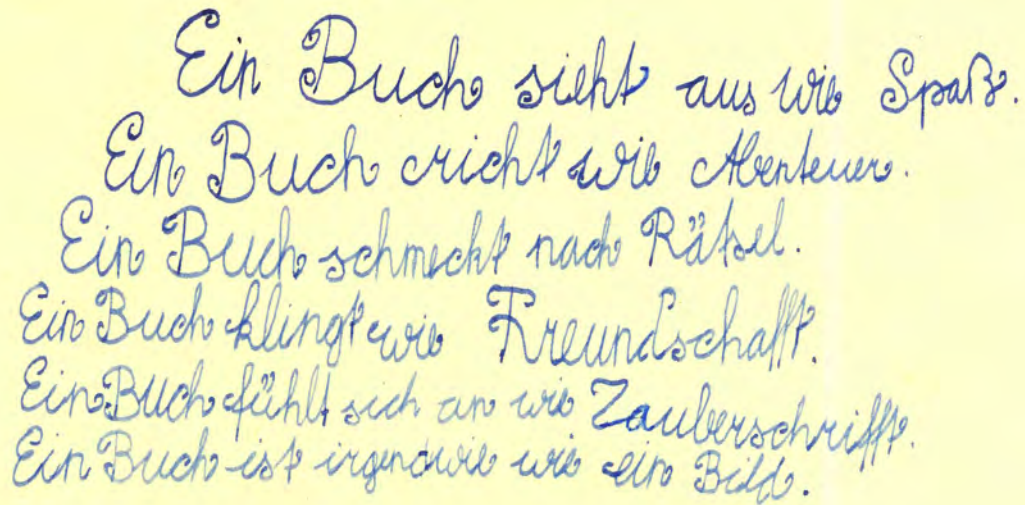 Ein Buch sieht aus wie Spaß.
Ein Buch richt wie Abenteuer.
Ein Buch schmeckt nach Rätsel.
Ein Buch klingt wie Freundschafft.
Ein Buch fühlt sich an wie Zauberschrifft.
Ein Buch ist irgendwie wie ein Bild.